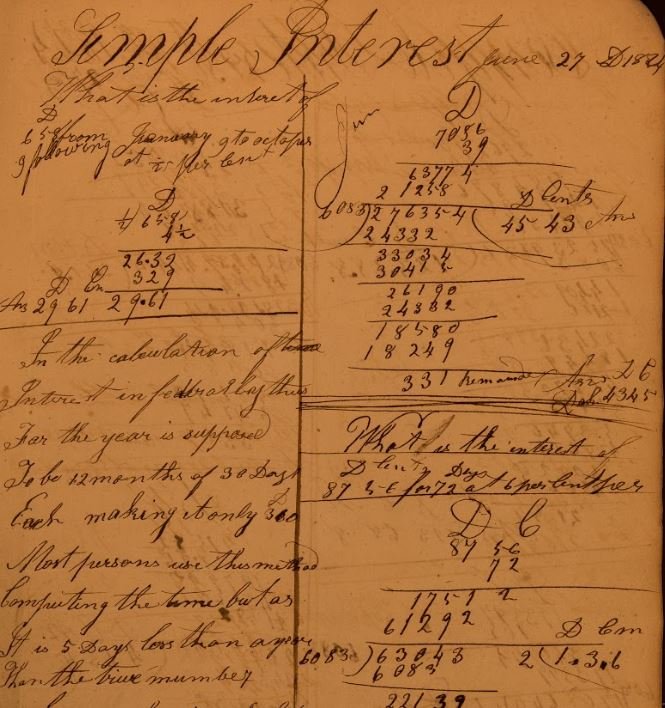 Simple Interest June 27 D 1884
What is the interet of
D
658 from
January 9 to octoper
9 following
at per Cent
D
658
4 1/2
26.32
329
D Cn
Ans 29 61 29.61
In the calculation of time
Interest in federal
For the year is supposed
To be 12 months of 30 Days
Each making it only 360
Most persons use this method
Computing the time but as
It is 5 Days less than a year
Than the true mumber
D
7086
39
63774
21258
D Cents
6083)276354(45 43 Ans
24332
33034
30415
26190
24332
18580
18249
331 Remainder
Ans
Dol 4345
What is the interest of
D Cent Days
87 56 for 72 at 6 per Cent per
D C
87 56
72
1751 2
61292
D C m
6083)63043 2(1.3.6
6083
22139